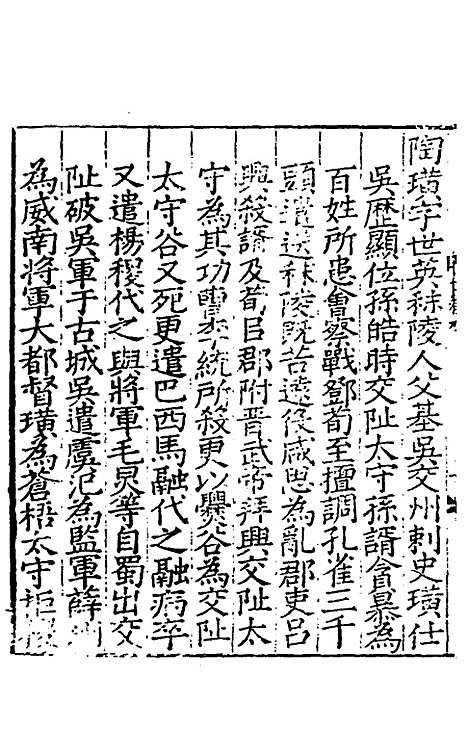 陶璜字世英秣陵人父基吳交州刺史璜仕
吳歷顯位孫皓時交阯太守孫諝貪暴為
百姓所患會察戰鄧荀至擅調孔雀三千
頭遣送秣陵既苦遠役咸思為亂郡吏呂
興殺諝及荀以郡附晉武帝拜興交阯太
守為其功曹李統所殺更以爨谷為交阯
太守谷又死更遣巴西馬融代之融病卒
又遣楊稷代之與將軍毛炅等自蜀出交
阯破吳軍于古城吳遣虞汜為監軍薛
為威南將軍大都督璜為蒼梧太守拒